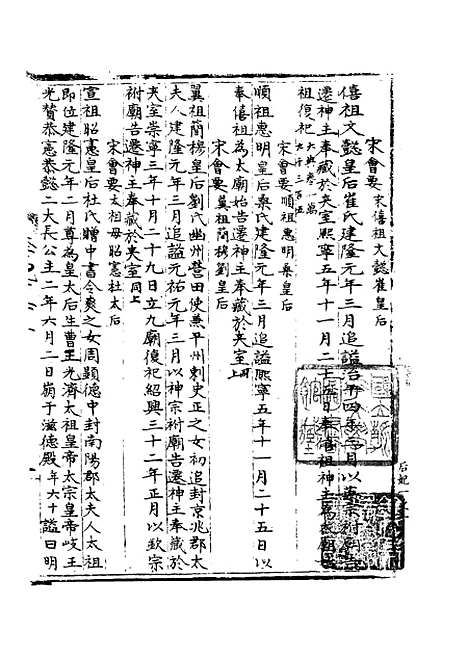 宋會要 宋僖祖文懿崔皇后
僖祖文懿皇后崔氏建隆元年三月追謚治平四年三月以英宗祔廟告
遷神主奉藏於夾室熙寧五年十一月二十五日奉僖祖神主為太廟始
祖復祀
宋會要 順祖惠明桑皇后
順祖惠明皇后桑氏建隆元年三月追謚熙寧五年十一月二十五日以
奉僖祖為太廟始告遷神主奉藏於夾室同上
宋會要 翼祖簡穆劉皇后
翼祖簡穆皇后劉氏幽州營田使兼平州刺史正之女初追封京兆郡太
夫人建隆元年三月追謚元祐元年三月以神宗祔廟告遷神主奉藏於
夾室崇寧三年十月二十九日立九廟復祀紹興三十二年正月以欽宗
祔廟告遷神主奉藏於夾室同上
宋會要 太祖母昭憲杜太后
宣祖昭憲皇后杜氏贈中書令爽之女周顯德中封南陽郡太夫人太祖
即位建隆元年二月尊為皇太后生曹王光濟太祖皇帝太宗皇帝岐王
光贊恭憲恭懿二大長公主二年六月二日崩于滋德殿年六十謚曰明
后妃一